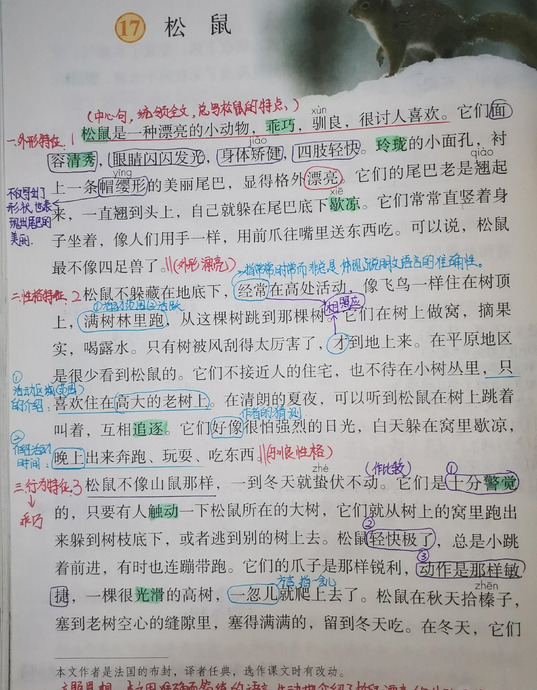 17 松 鼠
(中心句,统领全文,总写松鼠的特点、)
xùn
一.外形特征 1 松鼠是一种漂亮的小动物，乖巧，驯良，很讨人喜欢。它们面
jiǎo
容清秀，眼睛闪闪发光，身体矫健，四肢轻快。玲珑的小面孔，衬
yīng qiào
上一条帽缨形的美丽尾巴，显得格外漂亮。它们的尾巴老是翘起
xiē
来，一直翘到头上，自己就躲在尾巴底下歇凉。它们常常直竖着身
形状,也表
现出尾巴的
美丽.
子坐着，像人们用手一样，用前爪往嘴里送东西吃。可以说，松鼠
最不像四足兽了。(外形漂亮)
二.性格特征 2 松鼠不躲藏在地底下，经常在高处活动，像飞鸟一样住在树顶
上，满树林里跑，从这棵树跳到那棵树。它们在树上做窝，摘果
相照应
实，喝露水。只有树被风刮得太厉害了，才到地上来。在平原地区
是很少看到松鼠的。它们不接近人的住宅，也不待在小树丛里，只
①
的介绍:
喜欢住在高大的老树上。在清朗的夏夜，可以听到松鼠在树上跳着
作者的猜测
叫着，互相追逐。它们好像很怕强烈的日光，白天躲在窝里歇凉，
②
时间:
晚上出来奔跑、玩耍、吃东西。(驯良性格)
zhé (作比较) ①
三.行为特征 3 松鼠不像山鼠那样，一到冬天就蛰伏不动。它们是十分警觉
乖巧
的，只要有人触动一下松鼠所在的大树，它们就从树上的窝里跑出
②
来躲到树枝底下，或者逃到别的树上去。松鼠轻快极了，总是小跳
③
着前进，有时也连蹦带跑。它们的爪子是那样锐利，动作是那样敏
zhēn
捷，一棵很光滑的高树，一忽儿就爬上去了。松鼠在秋天拾榛子，
塞到老树空心的缝隙里，塞得满满的，留到冬天吃。在冬天，它们
本文作者是法国的布封，译者任典，选作课文时有改动。